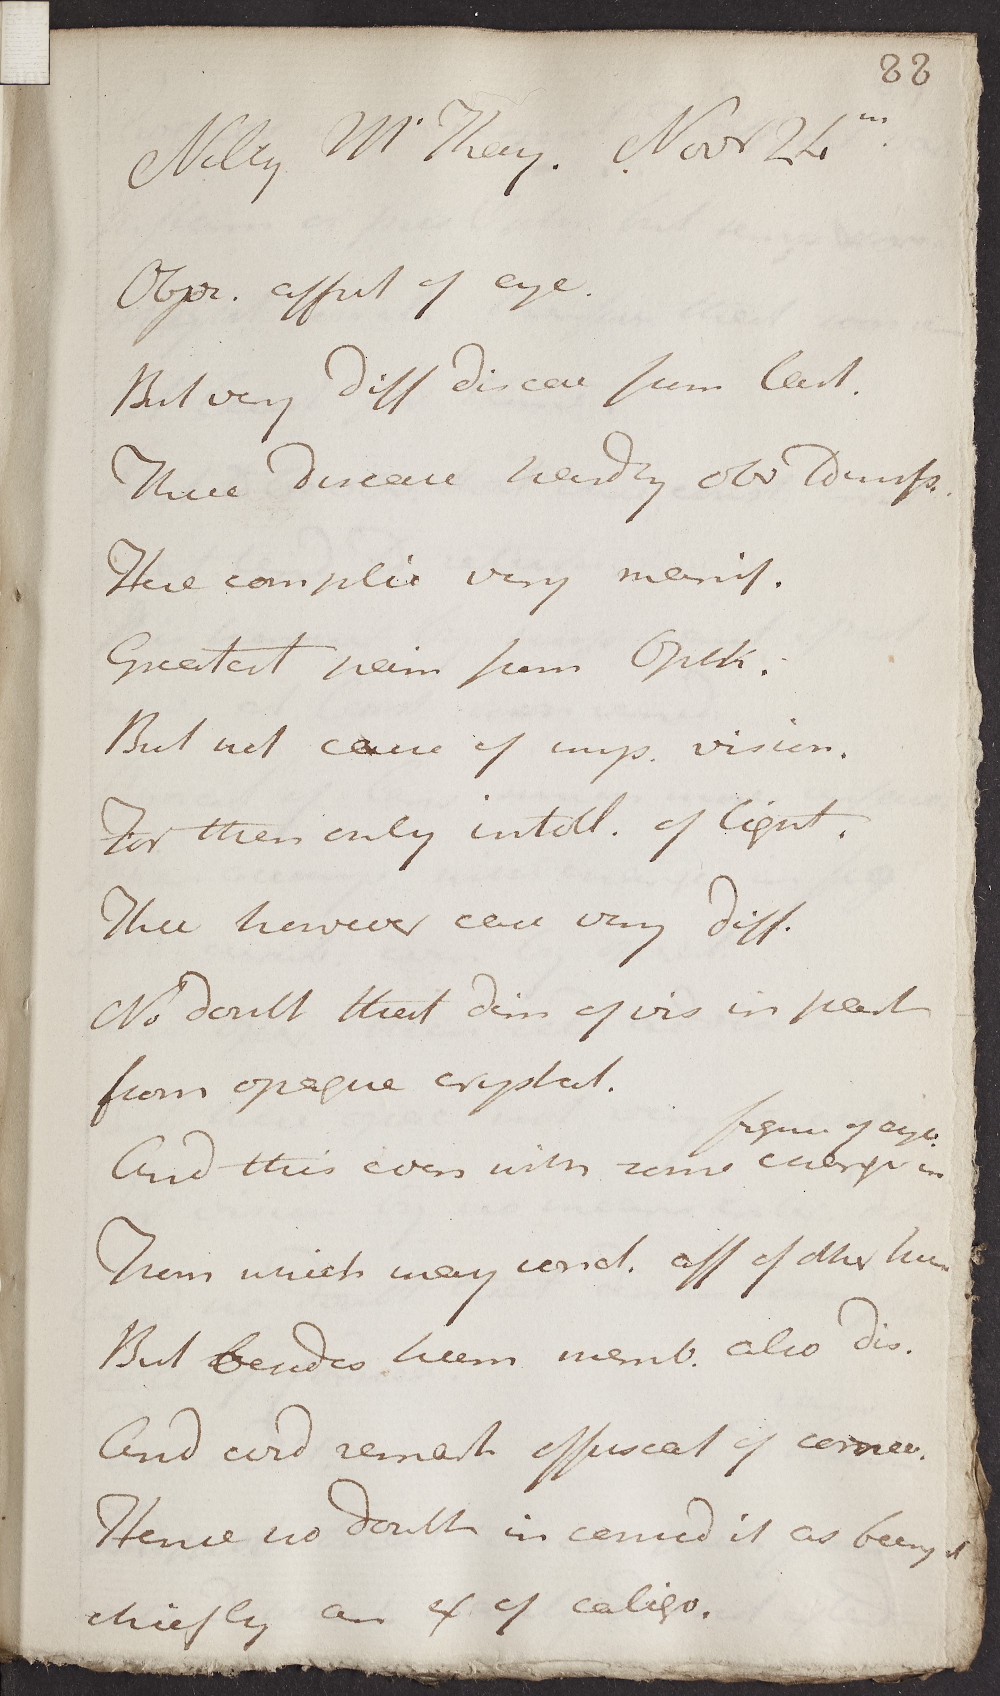 88
Nelly McKay. Novr 24th.
Obser. affect of eye.
But very diff disease from last.
There disease hardly obs
Here complic very manif.
Greatest pain from Opth.
But not cause of imp. vision.
For then only intoll. of light.
This however case very diff.
No doubt that dim of vis in part
from opaque crystal.
figure of eye.
And this even with some change in
From which may concl. aff of other hum
But besides hum memb. also dis.
And cord remark offuscat of cornea.
Hence no doubt in consid it as being
chiefly an ex of caligo.